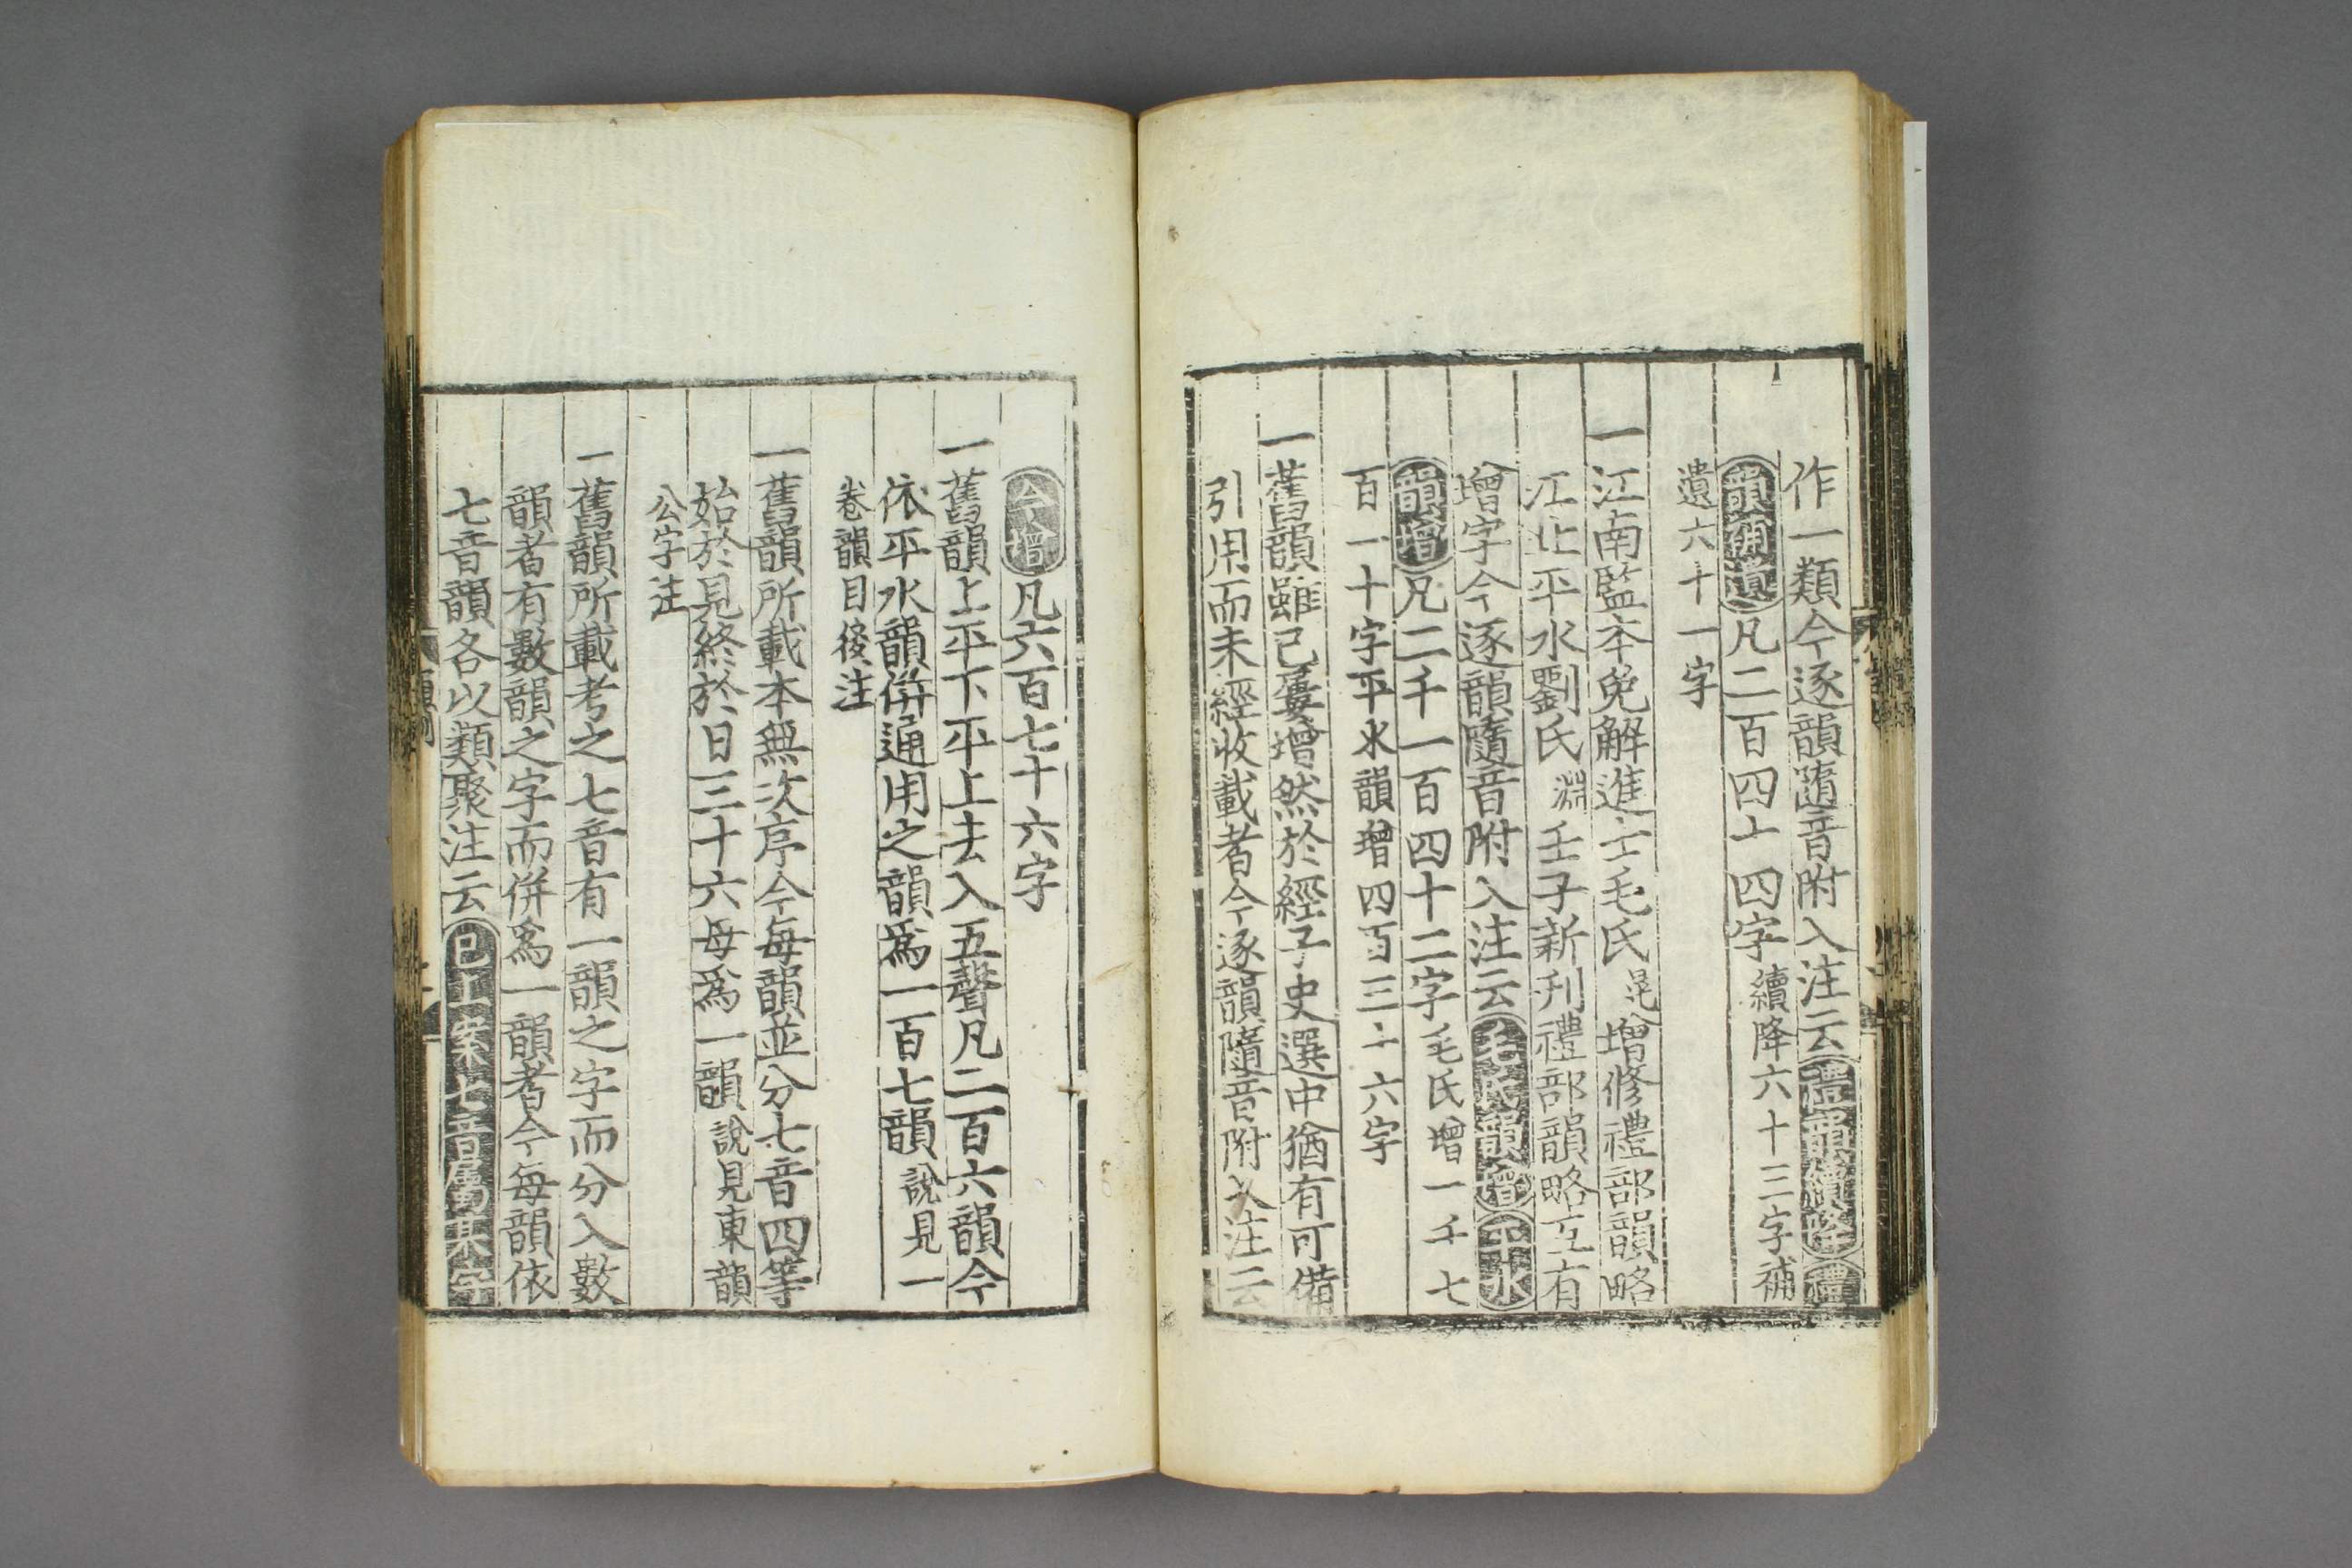 作一類今逐韻隨音附入注云禮韻續降禮
韻補遺凡二百四十四字續降六十三字補
遺六十一字
一江南監本免解進士毛氏晃增修禮部韻略
江北平水劉氏淵壬子新刊禮部韻略互有
增字今逐韻隨音附入注云毛氏韻增平水
韻增凡二千一百四十二字毛氏增一千七
百一十字平水韻增四百三十六字
一舊韻雖已屢增然於經子史選中猶有可備
引用而未經收載者今逐韻隨音附入注云
今增凡六百七十六字
一舊韻上平下平上去入五聲凡二百六韻今
依平水韻併通用之韻為一百七韻說見一
卷韻目後注
一舊韻所載本無次序今每韻並分七音四等
始於見終於日三十六母為一韻說見東韻
公字注
一舊韻所載考之七音有一韻之字而分入數
韻者有數韻之字而併為一韻者今每韻依
七音韻各以類聚注云已上案七音屬某字